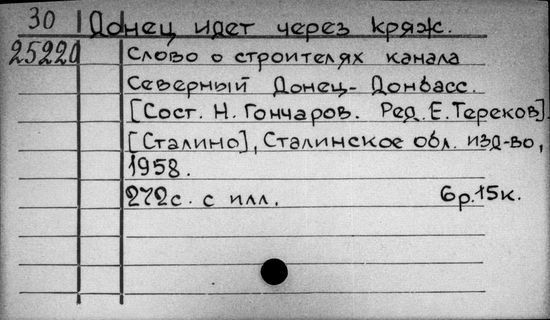 30 Донец идет через кряж.
25220 Слово о строителях канала
Северный Донец-Донбасс.
[Сост. Н. Гончаров. Ред. Е. Тереков].
[Сталино], Сталинское обл. изд-во,
1958.
272с. с илл. 6р.15к.